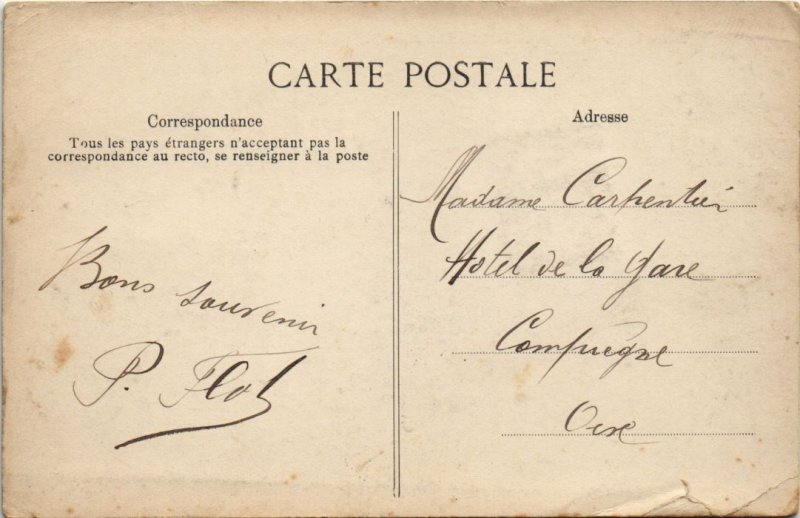 CARTE POSTALE
Correspondance
Tous les pays étrangers n'acceptant pas la
correspondance au recto, se renseigner à la poste
Bons souvenir
P. Flot
Adresse
Madame Carpentier
Hôtel de la Gare
Compiègne
Oise